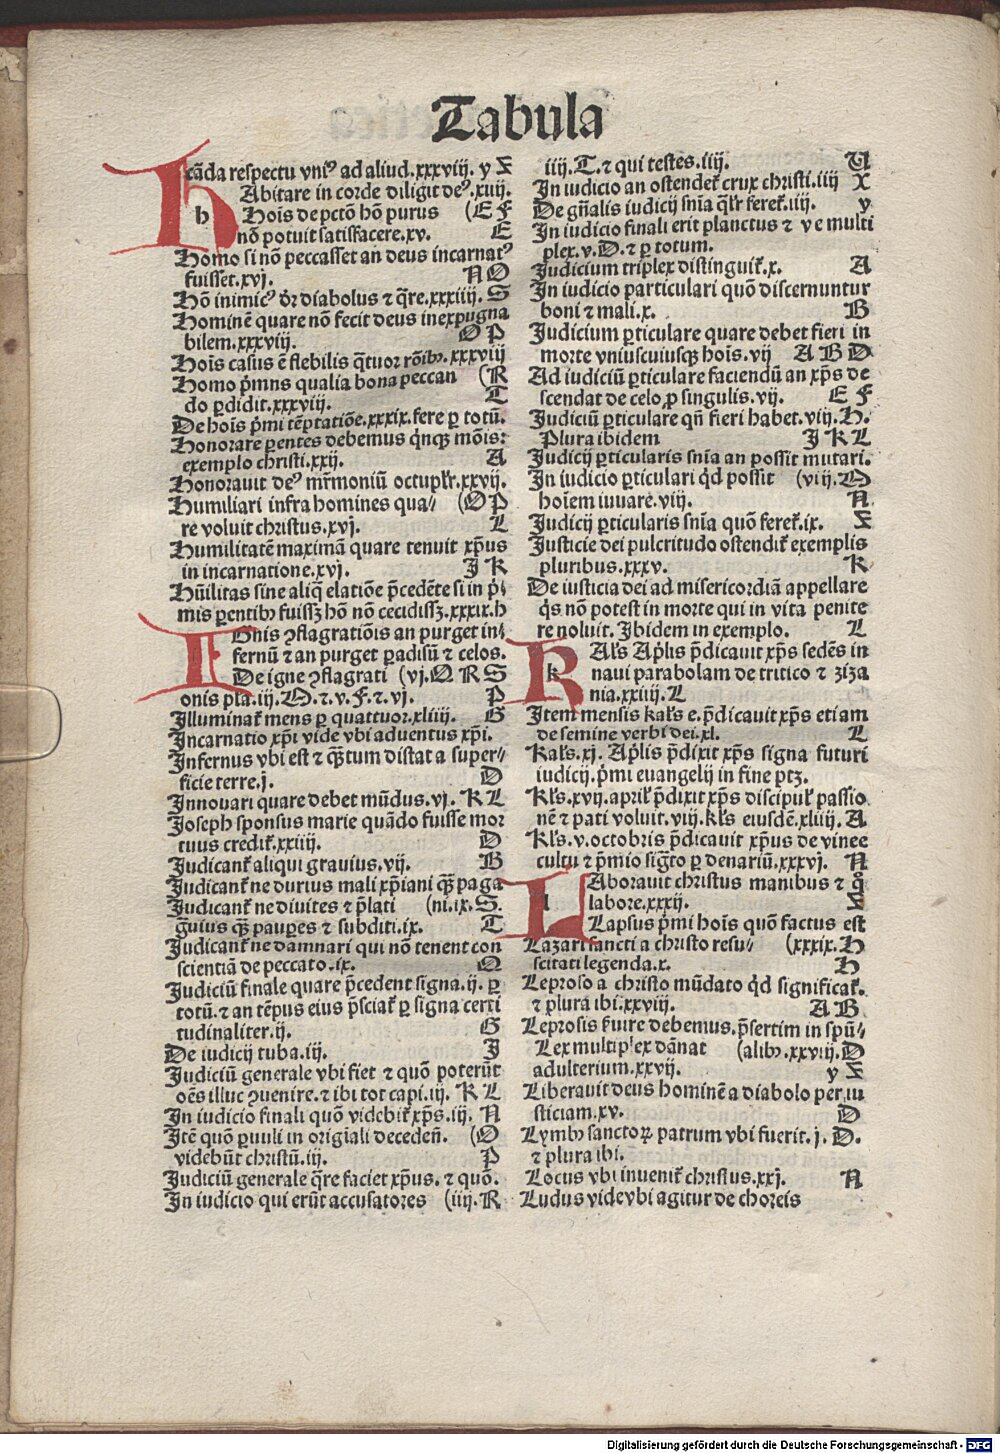 Tabula
icãda respectu vniꝰ ad aliud.xxxviij. y Z
HAbitare in corde diligit deꝰ.xiiij.
h Hoĩs de pctõ hõ purus (E F
nõ potuit satisfacere.xv. E
Homo si nõ peccasset an deus incarnatꝰ
fuisset.xvj. N O
Hõ inimicꝰ dr̃ diabolus ⁊ q̃re.xxxiiij. S
Hominẽ quare nõ fecit deus inexpugna
bilem.xxxviij. O P
Hoĩs casus ẽ flebilis q̃tuor rõib⁹.xxxviij
Homo p̃mns qualia bona peccan (R
do ꝑdidit.xxxviij. T
De hoĩs p̃mi tẽptatiõe.xxxix.fere ꝑ totũ.
Honorare ꝑentes debemus q̃nqꝫ mõis:
exemplo christi.xxij. A
Honorauit deꝰ mr̃moniũ octupłr.xxvij.
Humiliari infra homines qua⸗ (O P
re voluit christus.xvj. L
Humilitatẽ maximã quare tenuit xp̃us
in incarnatione.xvj. J K
Hũilitas sine aliq̃ elatiõe p̃cedẽte si in p̃i
mis ꝑentib⁹ fuissꝫ hõ nõ cecidissꝫ.xxxix.h
IGnis ꝯflagratiõis an purget in⸗
fernũ ⁊ an purget ꝑadisũ ⁊ celos.
De igne ꝯflagrati (vj.Q R S
onis pła.iij.M.⁊.v.F.⁊.vj. P
Illuminat̃ mens ꝑ quattuor.xliiij. G
Incarnatio xp̃i vide vbi aduentus xp̃i.
Infernus vbi est ⁊ q̃ꝫtum distat a super⸗
ficie terre.j. D
Innouari quare debet mũdus.vj. K L
Joseph sponsus marie quãdo fuisse mor
tuus credit̃.xxiiij. D
Judicant̃ aliqui grauius.vij. B
Judicant̃ ne durius mali xp̃iani q̃ꝫ paga
Judicant̃ ne diuites ⁊ p̃lati (ni.ix.S.
g̃uius q̃ꝫ pauꝑes ⁊ subditi.ix. T
Judicant̃ ne damnari qui nõ tenent con
scientiã de peccato.ix. Q
Judiciũ finale quare p̃cedent signa.ij. ꝑ
totũ.⁊ an tẽpus eius p̃sciat̃ ꝑ signa certi
tudinaliter.ij. G
De iudicij tuba.iij. J
Judiciũ generale vbi fiet ⁊ quõ poterũt
oẽs illuc ꝯuenire.⁊ ibi tot capi.iij. K L
In iudicio finali quõ videbit̃ xp̃s.iij. N
Itẽ quõ ꝑuuli in origĩali deceden̄. (O
videbũt christũ.iij. P
Judiciũ generale q̃re faciet xp̃us. ⁊ quõ.
In iudicio qui erũt accusatores (iiij.R
iiij.T.⁊ qui testes.iiij. V
In iudicio an ostendet̃ crux christi.iiij X
De gñalis iudicij sñia q̃lr feret̃.iiij. y
In iudicio finali erit planctus ⁊ v e multi
plex.v.D.⁊ ꝑ totum.
Judicium triplex distinguit̃.x. A
In iudicio particulari quõ discernuntur
boni ⁊ mali.x. B
Judicium ꝑticulare quare debet fieri in
morte vniuscuiusqꝫ hoĩs.vij A B D
Ad iudiciũ ꝑticulare faciendũ an xp̃s de
scendat de celo ꝓ singulis.vij. E F
Judiciũ ꝑticulare qñ fieri habet.viij.H.
Plura ibidem J K L
Judicij ꝑticularis sñia an possit mutari.
In iudicio ꝑticulari q̃d possit (viij.M
hoĩem iuuare.viij. N
Judicij ꝑticularis sñia quõ feret̃.ix. Z
Justicie dei pulcritudo ostendit̃ exemplis
pluribus.xxxv. K
De iusticia dei ad misericordiã appellare
q̃s nõ potest in morte qui in vita penite
re noluit. Ibidem in exemplo. L
KAłs Ap̃lis p̃dicauit xp̃s sedẽs in
k naui parabolam de tritico ⁊ ziza
nia.xxiiij.L
Item mensis kałs e.p̃dicauit xp̃s etiam
de semine verbi dei.xl. L
Kałs.xj. Ap̃lis p̃dixit xp̃s signa futuri
iudicij.p̃mi euangelij in fine ptꝫ.
Kłs.xvij.april̃ p̃dixit xp̃s discipul̃ passio
nẽ ⁊ pati voluit.viij.kłs eiusdẽ.xliiij. A
Kłs.v.octobris p̃dicauit xp̃us de vinee
cultu ⁊ p̃mio sig̃to ꝑ denariũ.xxxvj. N
LAborauit christus manibus ⁊ q̊
l labore.xxxij. Z
Lapsus p̃mi hoĩs quõ factus est
Lazari sancti a christo resu⸗ (xxxix.H
scitati legenda.x. H
Leproso a christo mũdato q̃d significat̃.
⁊ plura ibi.xxviij. A B
Leprosis fuire debemus.p̃sertim in spũ⸗
Lex multiplex dãnat (alib⁹.xxviij.D
adulterium.xxvij. y Z
Liberauit deus hominẽ a diabolo per iu
sticiam.xv. D
Lymb⁹ sanctoꝝ patrum vbi fuerit.j. D.
⁊ plura ibi.
Locus vbi inuenit̃ christus.xxj. N
Ludus vide vbi agitur de choreis
Digitalisierung gefördert durch die Deutsche Forschungsgemeinschaft - DFG